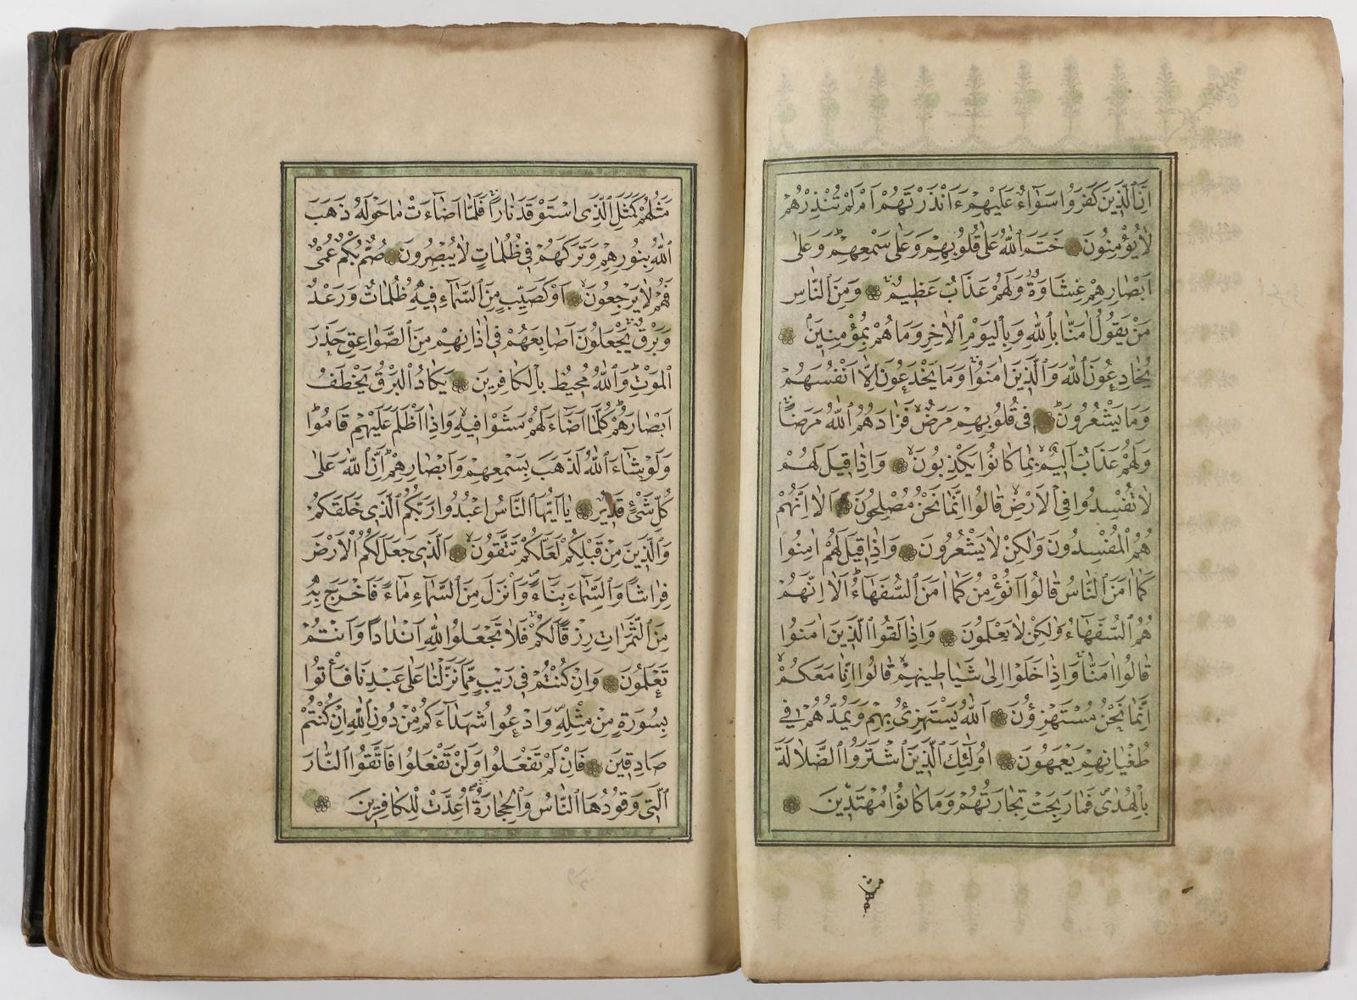 اِنَّ الَّذٖينَ كَفَرُوا سَوَٓاءٌ عَلَيْهِمْ ءَاَنْذَرْتَهُمْ اَمْ لَمْ تُنْذِرْهُمْ
لَا يُؤْمِنُونَ خَتَمَ اللّٰهُ عَلٰى قُلُوبِهِمْ وَعَلٰى سَمْعِهِمْ وَعَلٰٓى
اَبْصَارِهِمْ غِشَاوَةٌ وَلَهُمْ عَذَابٌ عَظٖيمٌ وَمِنَ النَّاسِ
مَنْ يَقُولُ اٰمَنَّا بِاللّٰهِ وَبِالْيَوْمِ الْاٰخِرِ وَمَا هُمْ بِمُؤْمِنٖينَ
يُخَادِعُونَ اللّٰهَ وَالَّذٖينَ اٰمَنُوا وَمَا يَخْدَعُونَ اِلَّٓا اَنْفُسَهُمْ
وَمَا يَشْعُرُونَ فٖى قُلُوبِهِمْ مَرَضٌ فَزَادَهُمُ اللّٰهُ مَرَضًا
وَلَهُمْ عَذَابٌ اَلٖيمٌ بِمَا كَانُوا يَكْذِبُونَ وَاِذَا قٖيلَ لَهُمْ
لَا تُفْسِدُوا فِى الْاَرْضِ قَالُٓوا اِنَّمَا نَحْنُ مُصْلِحُونَ اَلَٓا اِنَّهُمْ
هُمُ الْمُفْسِدُونَ وَلٰكِنْ لَا يَشْعُرُونَ وَاِذَا قٖيلَ لَهُمْ اٰمِنُوا
كَمَٓا اٰمَنَ النَّاسُ قَالُٓوا اَنُؤْمِنُ كَمَٓا اٰمَنَ السُّفَهَٓاءُ اَلَٓا اِنَّهُمْ
هُمُ السُّفَهَٓاءُ وَلٰكِنْ لَا يَعْلَمُونَ وَاِذَا لَقُوا الَّذٖينَ اٰمَنُوا
قَالُٓوا اٰمَنَّا وَاِذَا خَلَوْا اِلٰى شَيَاطٖينِهِمْ قَالُٓوا اِنَّا مَعَكُمْ
اِنَّمَا نَحْنُ مُسْتَهْزِؤُنَ اَللّٰهُ يَسْتَهْزِئُ بِهِمْ وَيَمُدُّهُمْ فٖى
طُغْيَانِهِمْ يَعْمَهُونَ اُولٰٓئِكَ الَّذٖينَ اشْتَرَوُا الضَّلَالَةَ
بِالْهُدٰى فَمَا رَبِحَتْ تِجَارَتُهُمْ وَمَا كَانُوا مُهْتَدٖينَ
مَثَلُهُمْ كَمَثَلِ الَّذِى اسْتَوْقَدَ نَارًا فَلَمَّٓا اَضَٓاءَتْ مَا حَوْلَهُ ذَهَبَ
اللّٰهُ بِنُورِهِمْ وَتَرَكَهُمْ فٖى ظُلُمَاتٍ لَا يُبْصِرُونَ صُمٌّ بُكْمٌ عُمْىٌ
فَهُمْ لَا يَرْجِعُونَ اَوْ كَصَيِّبٍ مِنَ السَّمَٓاءِ فٖيهِ ظُلُمَاتٌ وَرَعْدٌ
وَبَرْقٌ يَجْعَلُونَ اَصَابِعَهُمْ فٖٓى اٰذَانِهِمْ مِنَ الصَّوَاعِقِ حَذَرَ
الْمَوْتِ وَاللّٰهُ مُحٖيطٌ بِالْكَافِرٖينَ يَكَادُ الْبَرْقُ يَخْطَفُ
اَبْصَارَهُمْ كُلَّمَٓا اَضَٓاءَ لَهُمْ مَشَوْا فٖيهِ وَاِذَٓا اَظْلَمَ عَلَيْهِمْ قَامُوا
وَلَوْ شَٓاءَ اللّٰهُ لَذَهَبَ بِسَمْعِهِمْ وَاَبْصَارِهِمْ اِنَّ اللّٰهَ عَلٰى
كُلِّ شَىْءٍ قَدٖيرٌ يَٓا اَيُّهَا النَّاسُ اعْبُدُوا رَبَّكُمُ الَّذٖى خَلَقَكُمْ
وَالَّذٖينَ مِنْ قَبْلِكُمْ لَعَلَّكُمْ تَتَّقُونَ اَلَّذٖى جَعَلَ لَكُمُ الْاَرْضَ
فِرَاشًا وَالسَّمَٓاءَ بِنَٓاءً وَاَنْزَلَ مِنَ السَّمَٓاءِ مَٓاءً فَاَخْرَجَ بِهٖ
مِنَ الثَّمَرَاتِ رِزْقًا لَكُمْ فَلَا تَجْعَلُوا لِلّٰهِ اَنْدَادًا وَاَنْتُمْ
تَعْلَمُونَ وَاِنْ كُنْتُمْ فٖى رَيْبٍ مِمَّا نَزَّلْنَا عَلٰى عَبْدِنَا فَأْتُوا
بِسُورَةٍ مِنْ مِثْلِهٖ وَادْعُوا شُهَدَٓاءَكُمْ مِنْ دُونِ اللّٰهِ اِنْ كُنْتُمْ
صَادِقٖينَ فَاِنْ لَمْ تَفْعَلُوا وَلَنْ تَفْعَلُوا فَاتَّقُوا النَّارَ
الَّتٖى وَقُودُهَا النَّاسُ وَالْحِجَارَةُ اُعِدَّتْ لِلْكَافِرٖينَ